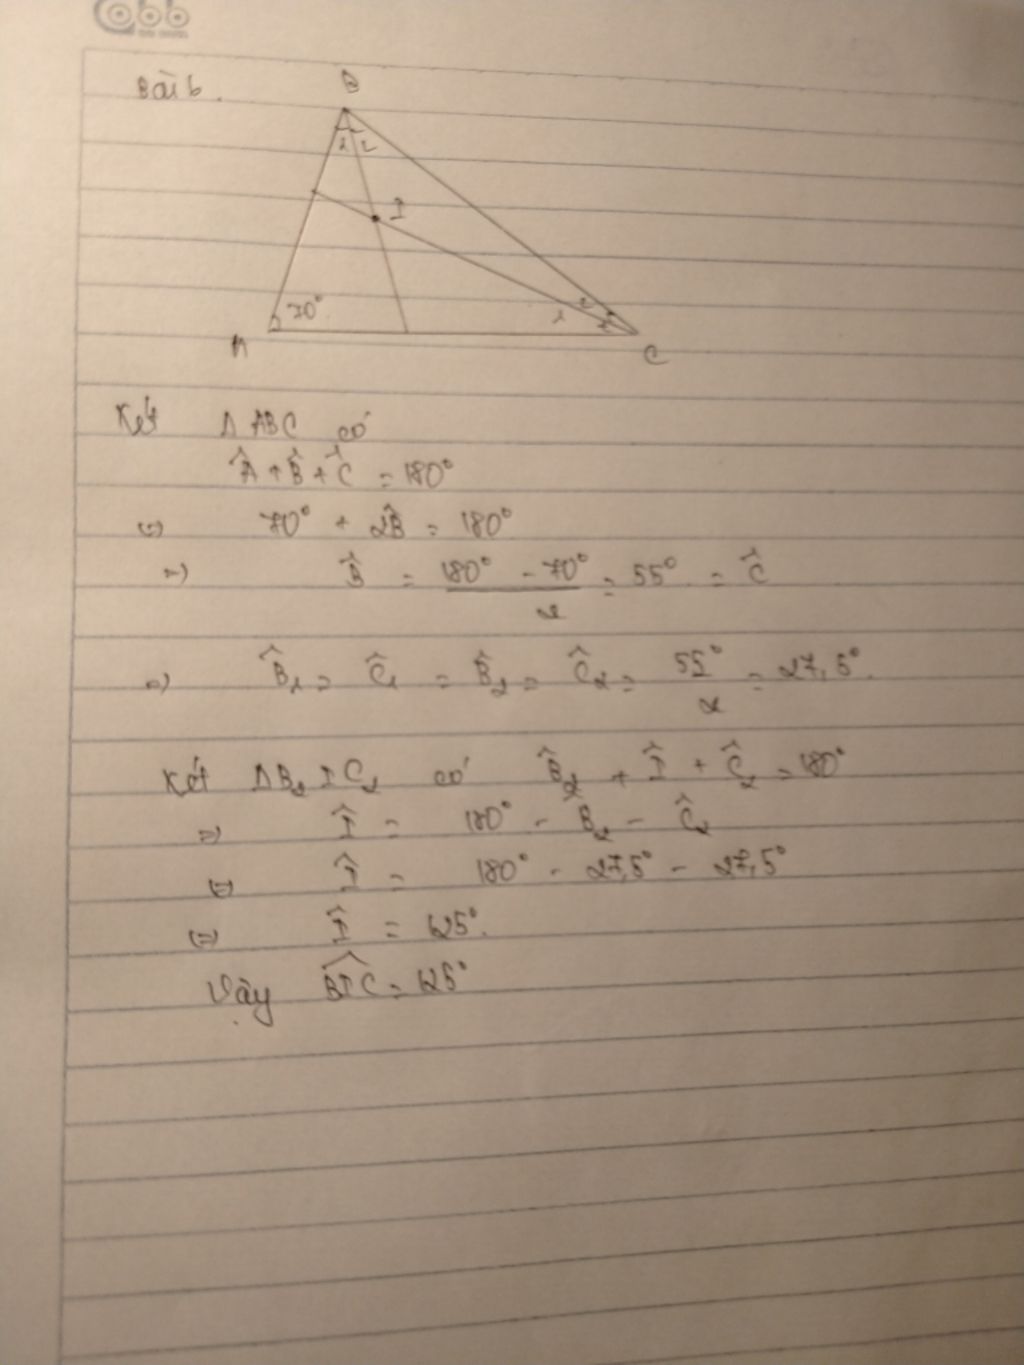 Bài 6.
B
1 2
I
70°
2
1
A
C
Xét Δ ABC có
Â + B̂ + Ĉ = 180°
(=) 70° + 2B̂ = 180°
=) B̂ = (180° - 70°)/2 = 55° = Ĉ
=) B̂₁ = Ĉ₁ = B̂₂ = Ĉ₂ = 55°/2 = 27,5°.
Xét Δ B₂ I C₂ có B̂₂ + Î + Ĉ₂ = 180°
=) Î = 180° - B̂₂ - Ĉ₂
(=) Î = 180° - 27,5° - 27,5°
(=) Î = 125°.
Vậy BIC = 125°